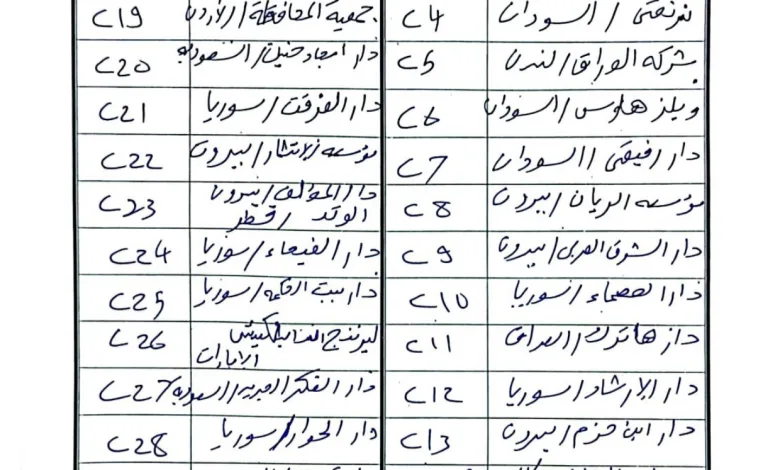 C4 /السودان
C5 شركة الوراق/لندن
C6 ويلز هاوس/السودان
C7 دار رفيقي/السودان
C8 مؤسسه الريان/بيروت
C9 دار الشرق العربي/بيروت
C10 دار العصماء/سوريا
C11 دار العراق
C12 دار الارشاد/سوريا
C13 دار ابن حزم/بيروت
C19 جمعية المحافظة/الأردن
C20 دار امجاد حنين/السعودية
C21 دار الفرقت/سوريا
C22 مؤسسة الانتشار/بيروت
C23 دار المؤلف/بيروت
الوتد /قطر
C24 دار الفيحاء/سوريا
C25 دار بيت الحكمة/سوريا
C26
الامارات
C27 دار الفكر /السعوديه
C28 دار الحوار/سوريا